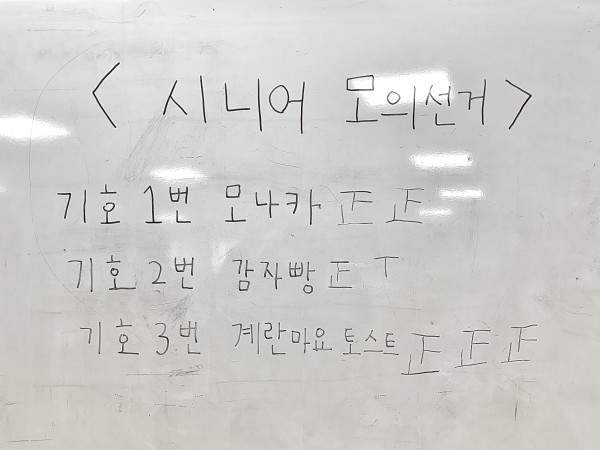 < 시니어 모의선거 >
기호 1번 모나카 正 正
기호 2번 감자빵 正 丅
기호 3번 계란마요 토스트 正 正 正